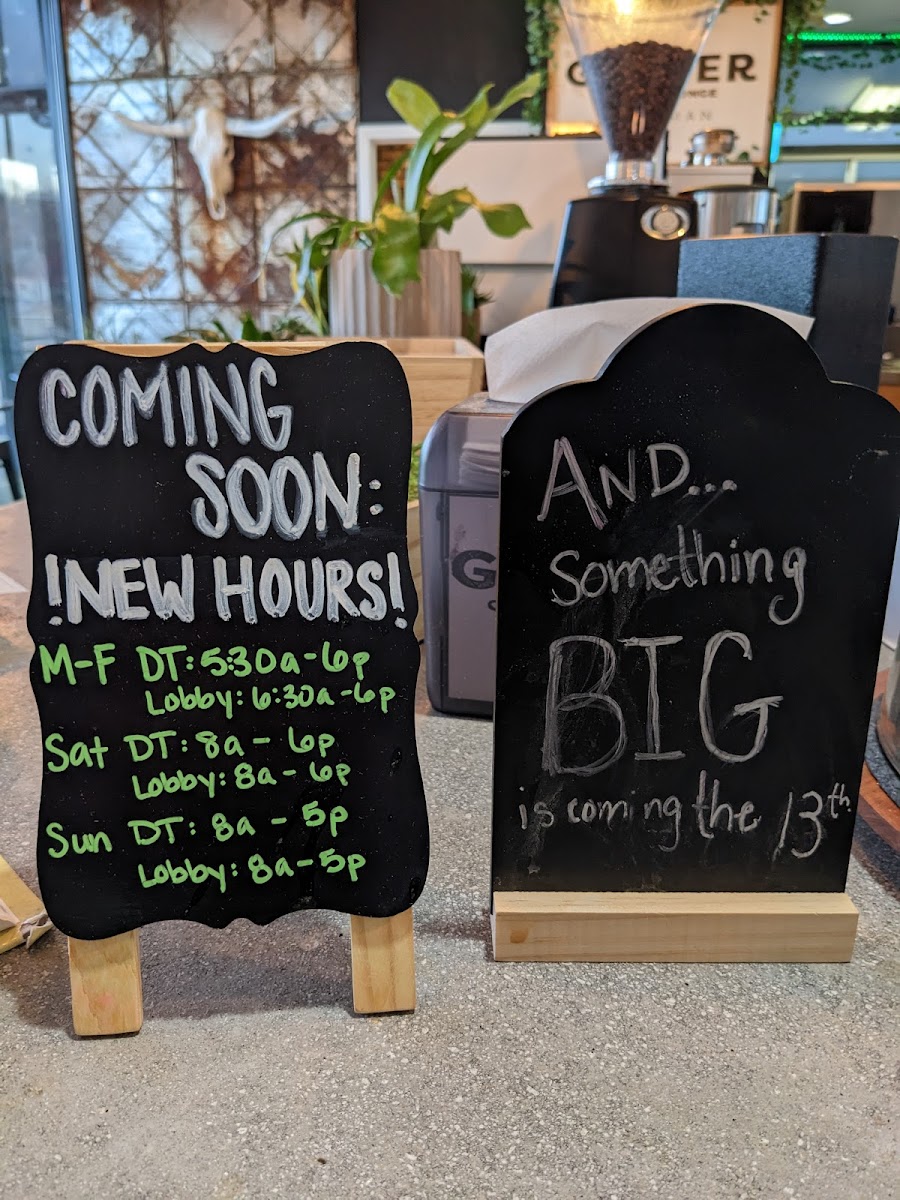 COMING
SOON:
!NEW HOURS!
M-F DT: 5:30a-6p
Lobby: 6:30a-6p
Sat DT: 8a - 6p
Lobby: 8a - 6p
Sun DT: 8a - 5p
Lobby: 8a-5p
AND...
Something
BIG
is coming the 13th